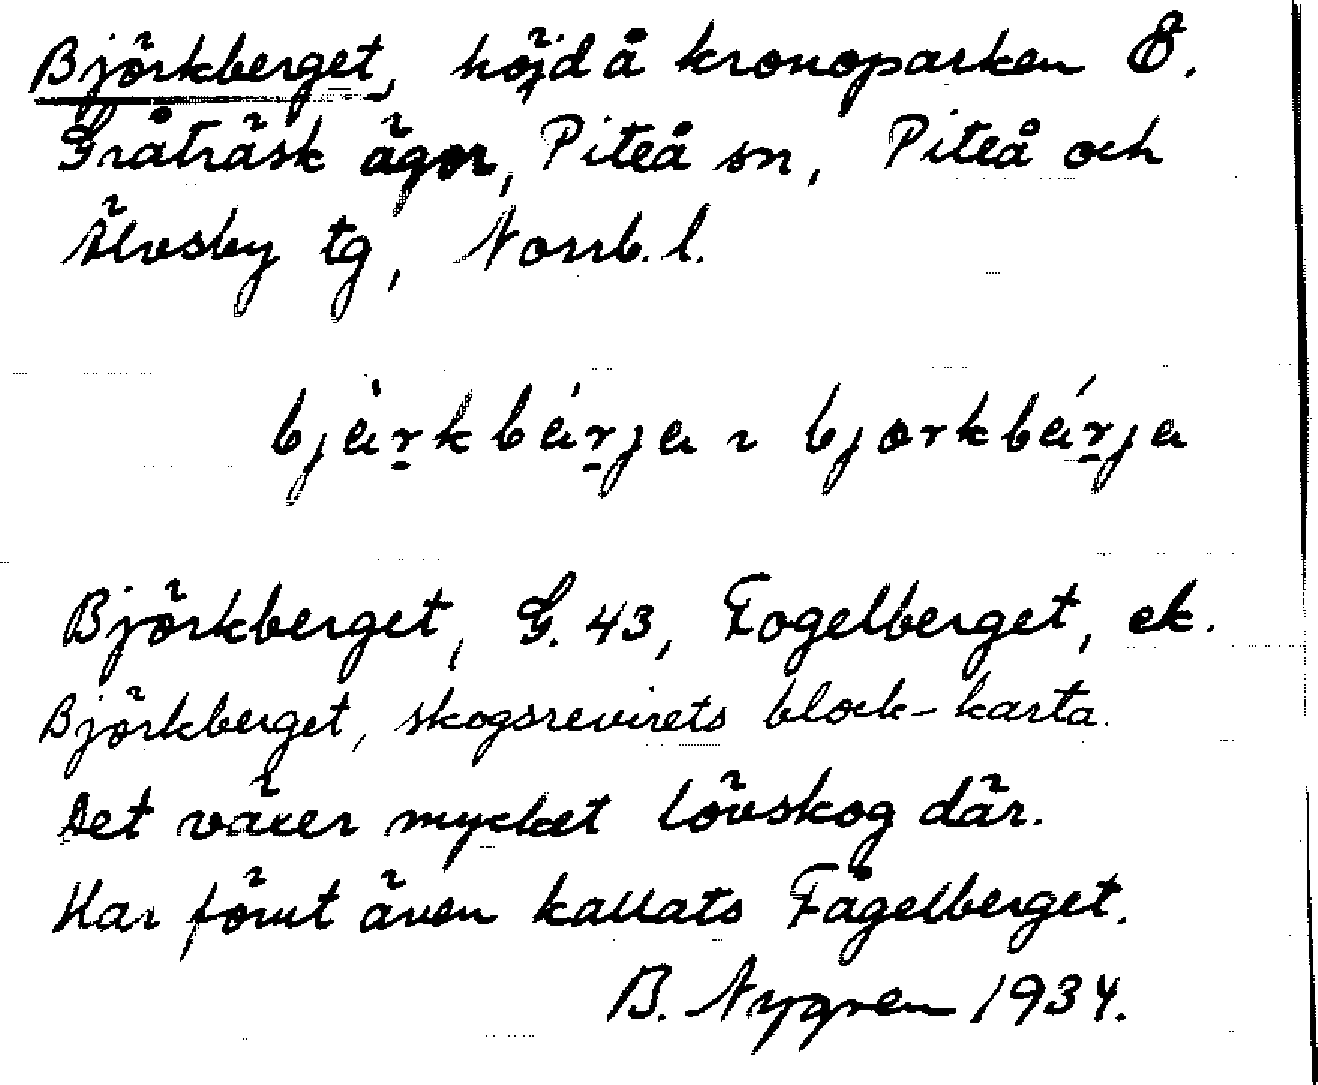 Björkberget, höjd å kronoparken Ö.
Gråträsk ägor, Piteå sn, Piteå och
Älvsby tg, Norrb. l.
bjàrkbárja ~ bjɵrkbárja
Björkberget, G. 43, Fogelberget, ek.
Björkberget, skogsrevirets block-karta.
Det växer mycket lövskog där.
Har förut även kallats Fågelberget.
B. Nygren 1934.